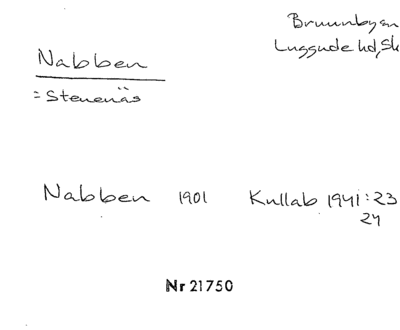 Brunnby sn
Luggude hd, Sk
Nabben
= Stenenäs
Nabben 1901 Kullab 1941:23
24
Nr 21750